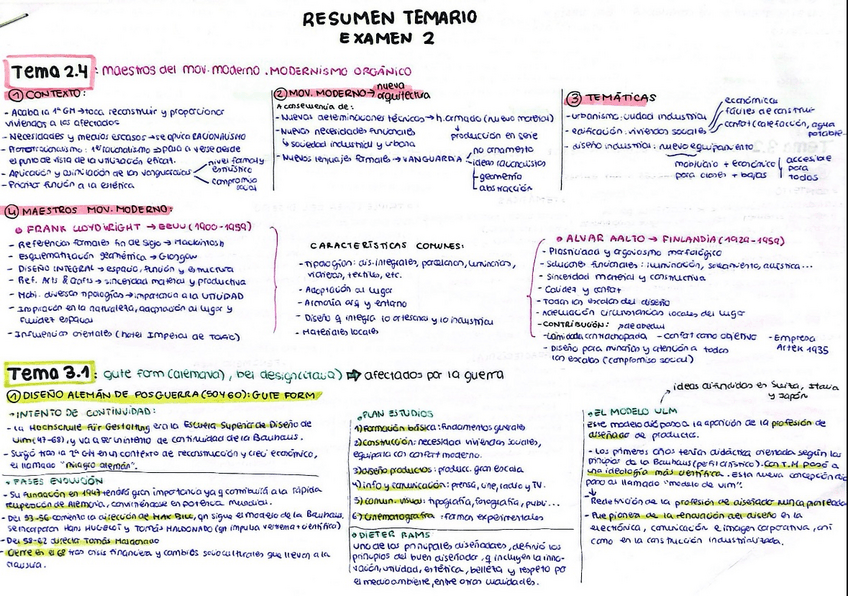 RESUMEN TEMARIO
EXAMEN 2
Tema 2.4: maestros del mov. moderno. MODERNISMO ORGÁNICO
① CONTEXTO:
- Acaba la 1ª GM → toca reconstruir y proporcionar
viviendas a los afectados
- Necesidades y medios escasos → se aplica RACIONALISMO
- Protorracionalismo: 1º racionalismo → para a verse desde
el punto de vista de la utilización eficaz.
- Aplicación y asimilación de las vanguardias
nivel formal y
estilístico
compromiso
social
- Priorizar función a la estética
② MOV. MODERNO → nueva
arquitectura
A consecuencia de:
- Nuevas determinaciones técnicas → h. armado (nuevo material)
producción en serie
- Nuevas necesidades funcionales
↳ sociedad industrial y urbana
- Nuevos lenguajes formales → VANGUARDIA
no ornamento
ideas racionalistas
geometría
abstracción
③ TEMÁTICAS
- urbanismo: ciudad industrial
- edificación: viviendas sociales
económicas
fáciles de construir
confort (calefacción, agua
potable)
- diseño industrial: nuevo equipamiento
mobiliario + económico
para clases + bajas
accesible
para
todos
④ MAESTROS MOV. MODERNO:
FRANK LLOYD WRIGHT → EEUU (1900-1959)
- Referencias formales fin de siglo → Mackintosh
- Esquematización geométrica → Glasgow
- DISEÑO INTEGRAL → espacio, función y estructura
- Ref. Arts & Crafts → sinceridad material y productiva
- Mobi. diversas tipologías → importancia a la UTILIDAD
- Inspiración en la naturaleza, adaptación al lugar y
fluidez espacial
- Influencias orientales (hotel Imperial de Tokio)
CARACTERÍSTICAS COMUNES:
- Tipologías: dis. integrales, porcelanas, luminarias,
vidrieras, techos, etc.
- Adaptación al lugar
- Armonía org y entorno
- Diseño q integra lo artesano y lo industrial
- Materiales locales
ALVAR AALTO → FINLANDIA (1929-1959)
- Plasticidad y organismo morfológico
- Soluciones funcionales: iluminación, acústica...
- Sinceridad material y constructiva
- Calidez y confort
- Todas las escalas del diseño
- Adecuación circunstancias locales del lugar
- CONTRIBUCIÓN:
- Laminada contrachapada - confort como objetivo - Empresa
Artek 1935
- Diseño para minorías y atención a todas
las escalas (compromiso social)
Tema 3.1: gute form (alemania), bel design (italia) ⇨ afectados por la guerra
① DISEÑO ALEMÁN DE POSGUERRA (50 Y 60): GUTE FORM
INTENTO DE CONTINUIDAD:
- La Hochschule für Gestaltung era la Escuela Superior de Diseño de
Ulm (47-68), y va a ser un intento de continuidad de la Bauhaus.
- Surgió tras la 2ª GM en un contexto de reconstrucción y crec. económico,
el llamado "milagro alemán".
FASES EVOLUCIÓN
- Su fundación en 1947 tendrá gran importancia ya q contribuirá a la rápida
recuperación de Alemania, convirtiéndose en potencia mundial.
- Del 53-56 comienza la dirección de MAX BILL, qn sigue el modelo de la Bauhaus.
Se incorporan HANS GUGELOT y TOMÁS MALDONADO (qn impulsa vertiente + científica)
- Del 58-62 directa Tomás Maldonado
- Cierre en el 68 tras crisis financiera y cambios socioculturales que llevan a la
clausura.
PLAN ESTUDIOS
1) Formación básica: fundamentos generales
2) Construcción: necesidad viviendas sociales,
equiparla con confort moderno.
3) Diseño productos: producc. gran escala
4) Info y comunicación: prensa, cine, radio y TV.
5) Comun. visual: tipografía, fotografía, publi...
6) Cinematografía: formas experimentales
DIETER RAMS
uno de los principales diseñadores, definió los
principios del buen diseñador, q incluyen la inno-
vación, utilidad, estética, belleza y respeto por
el medio ambiente, entre otras cualidades.
ideas difundidas en Suiza, Italia
y Japón
EL MODELO ULM
Este modelo dió paso a la aparición de la profesión de
diseñador de productos.
- Los primeros años tenían didáctica orientada según los
principios de la Bauhaus (perfil artístico). Con T.M pasó a
una ideología más científica. Esta nueva concepción dio
paso al llamado "modelo de Ulm".
- Redefinición de la profesión de diseñador nunca planteada
- Fue pionera de la renovación del diseño en la
electrónica, comunicación e imagen corporativa, así
como en la construcción industrializada.